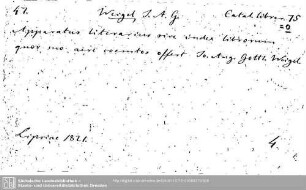 47. Weigel, J. A. G. Catal. libror. 75
= 0
Apparatus literarius sive index librorum
quos aere offert Jo. Aug. Gottl. Weigel
Lipsiae 1821. 4.
Sächsische Landesbibliothek -
Staats- und Universitätsbibliothek Dresden